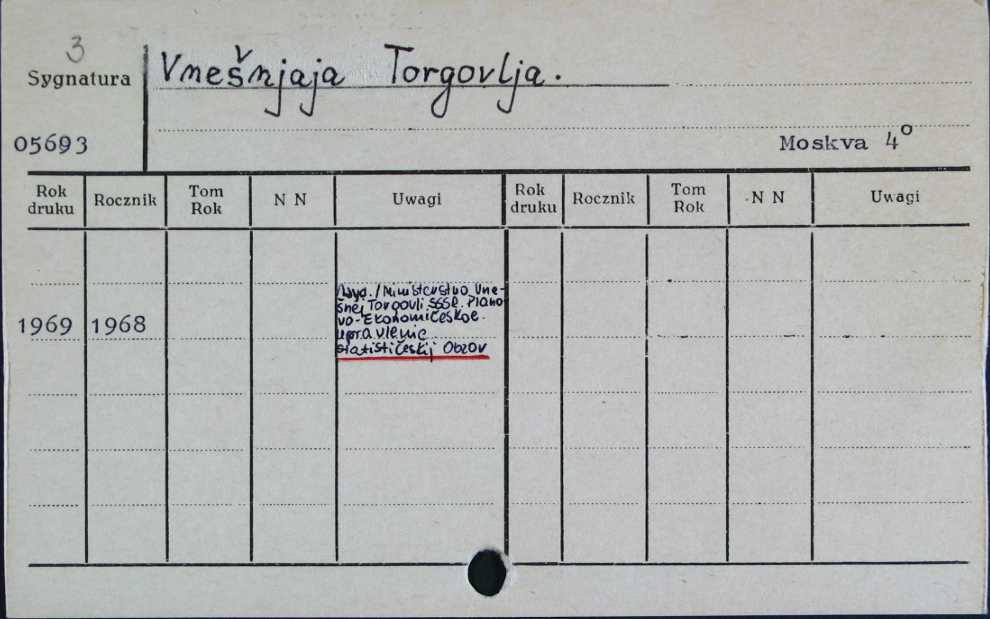 3
Sygnatura
Vnešnjaja Torgovlja.
05693
Moskva 4º
Rok druku Rocznik Tom Rok N N Uwagi Rok druku Rocznik Tom Rok N N Uwagi
/Wyd./Ministerstvo Vne-
šnej Torgovli SSSR. Plano
vo-Ekonomičeskoe.
1969 1968
upravlenie
statističeskij Obzov